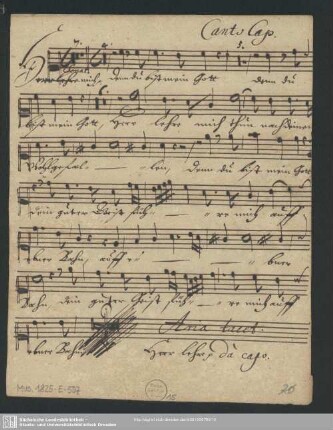 Cants Cap.
7. 4. 8.
Herr lehre mich, denn du bist mein Gott denn du
bist mein Gott, Herr lehre mich thun nach deinem
Wohlgefal - - len, denn du bist mein Gott
dein guter Geist füh - - - re mich auff
ebner Bahn, auff e - - - bner
Bahn dein guter Geist füh - - - re mich auff
ebner Bahn Aria tacet
Herr lehre da capo.
Mus. 1825-E-557
15
26
Sächsische Landesbibliothek -
Staats- und Universitätsbibliothek Dresden